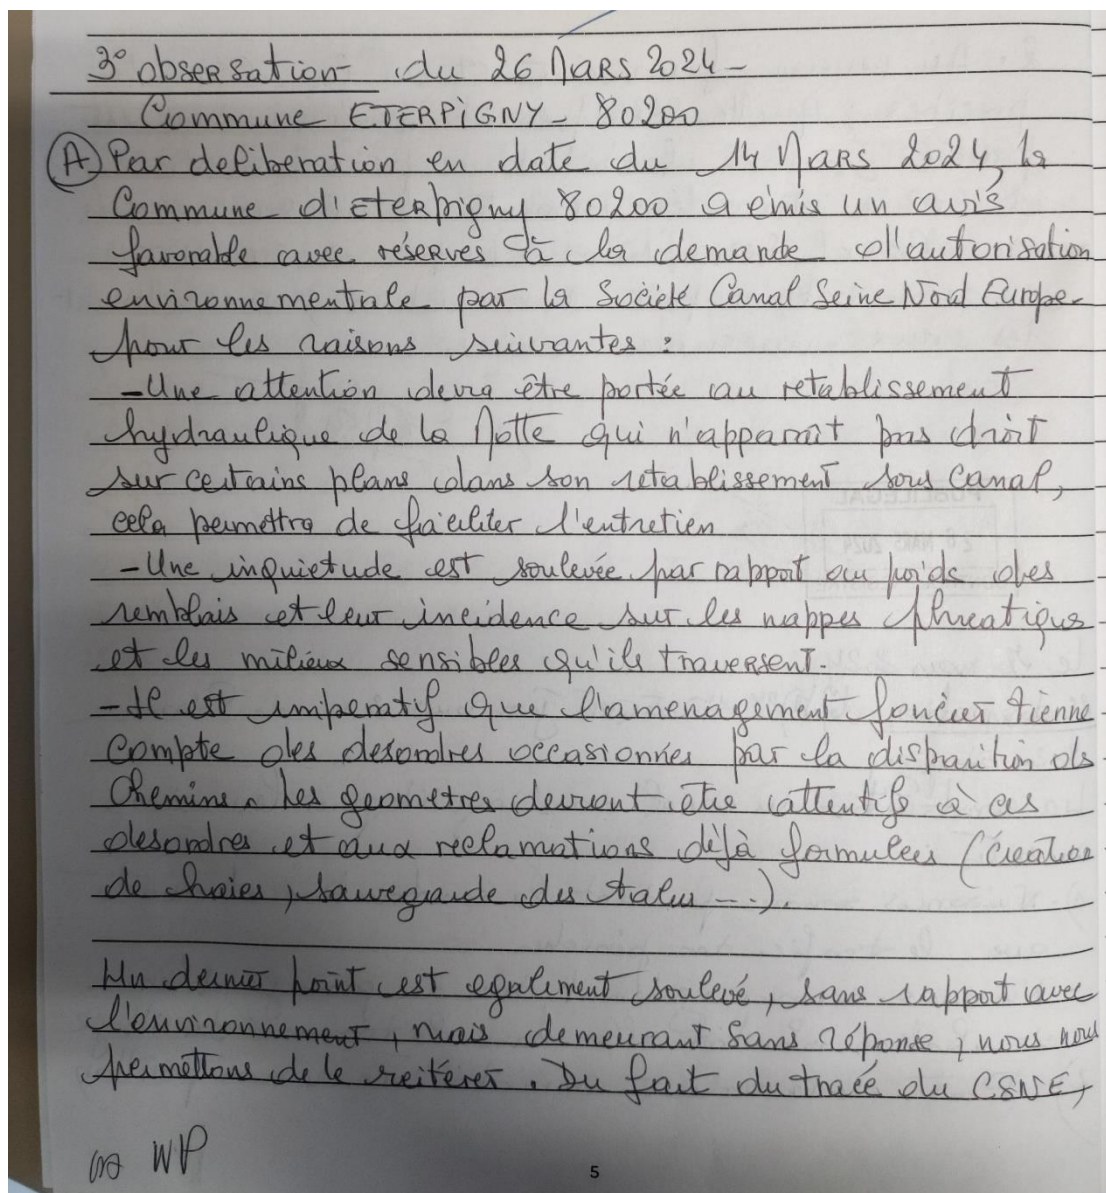 3° obserSation du 26 MARS 2024 -
Commune ETERPiGNY - 80200
(A) Par deliberation en date du 14 MARS 2024, la
Commune d'Eterpigny 80200 a émis un avis
favorable avec réserves à la demande d'autorisation
environnementale par la Société Canal Seine Nord Europe
pour les raisons suivantes :
- Une attention devra être portée au retablissement
hydraulique de la Motte qui n'apparaît pas droit
sur certains plans dans son retablissement sous Canal,
cela permettra de faciliter l'entretien
- Une inquietude est soulevée par rapport au poids des
remblais et leur incidence sur les nappes phreatiques
et les milieux sensibles qu'ils traversent.
- Il est imperatif que l'amenagement foncier tienne
compte des desordres occasionnés par la disparition des
Chemins. Les geometres devront être attentifs à ces
desordres et aux reclamations déjà formulees (création
de haies, sauvegarde des talus ---).
Un dernier point est egalement soulevé, sans rapport avec
l'environnement, mais demeurant sans réponse, nous nous
permettons de le reitérer. Du fait du tracé du CSNE,
WP
5